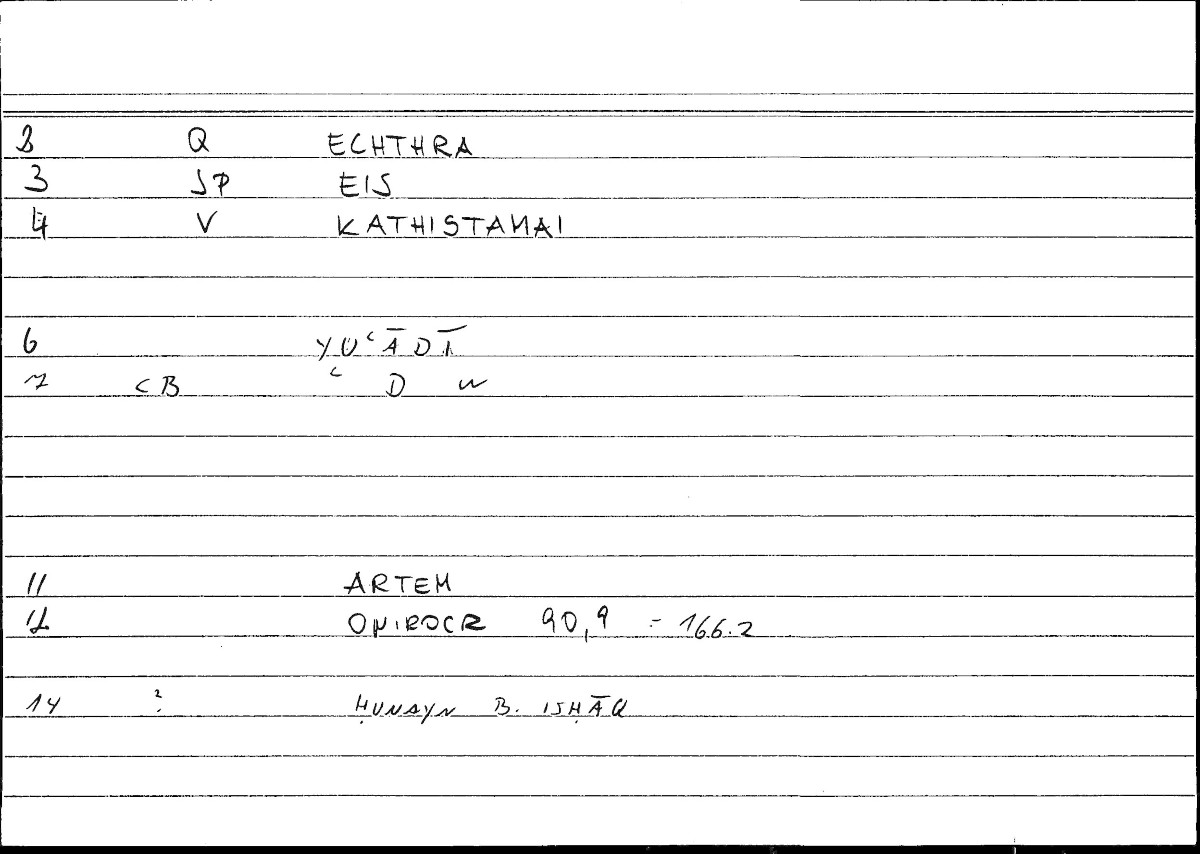 2 Q ECHTHRA
3 SP EIS
4 V KATHISTANAI
6 YUʿĀDĪ
7 CB ʿ D W
11 ARTEM
12 ONIROCR 90,9 = 166.2
14 ? ḤUNAYN B. ISḤĀQ